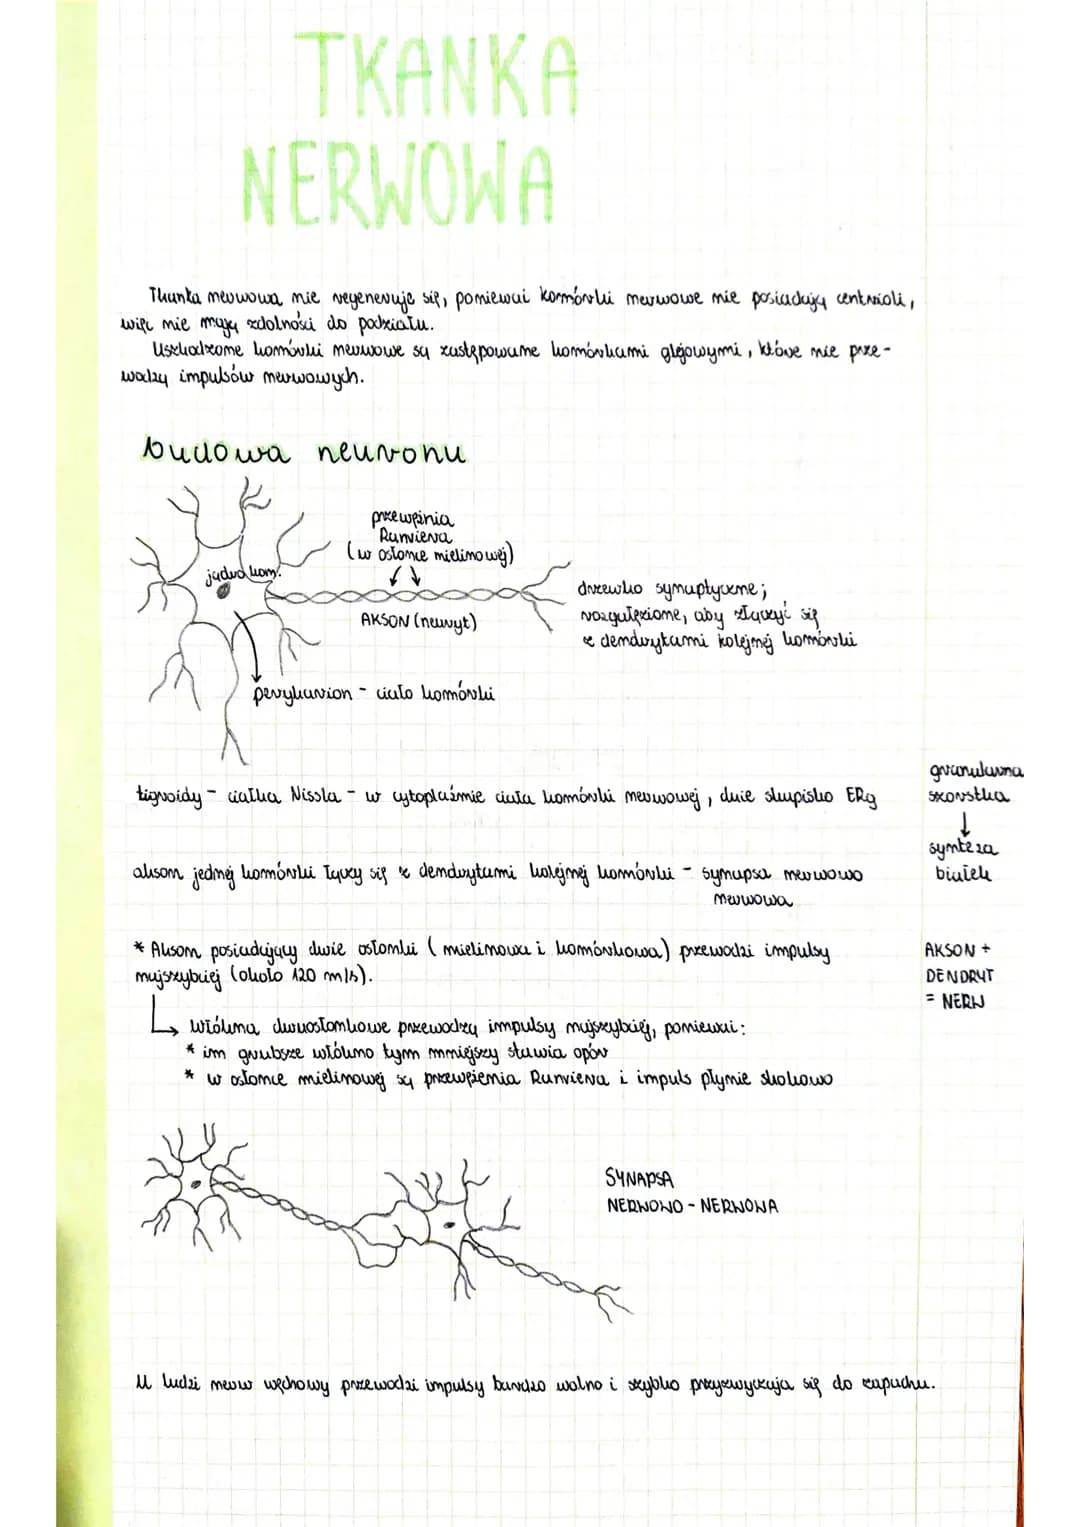 TKANKA
NERWOWA
Tkanka nerwowa nie regeneruje się, poniewai komórki nerwowe nie posiadają centrioli,
więc nie mają zdolności do podziału.
Uszkodzone komórki nerwowe są zastępowane komórkami glejowymi, które nie prze-
wodzą impulsów nerwowych.
budowa neuronu
przewężnia
Ranviera
(w osłonce mielinowej)
jądro kom.
AKSON (neuryt)
drzewko synaptyczne;
rozgałęzione, aby złączyć się
z dendrytami kolejnej komórki
perykarion - ciało komórki
tigroidy - ciałka Nissla - w cytoplaźmie ciała komórki nerwowej, duże skupisko ERg
granularna
szorstka
↓
synteza
białek
akson jednej komórki łączy się z dendrytami kolejnej komórki - synapsa nerwowo
nerwowa
* Akson posiadający dwie osłonki (mielinowa i komórkowa) przewodzi impulsy
najszybciej (około 120 m/s).
AKSON +
DENDRYT
= NERW
włókna dwuosłonkowe przewodzą impulsy najszybciej, poniewai:
* im grubsze włókno tym mniejszy stawia opór
* w osłonce mielinowej są przewężenia Ranviera i impuls płynie skokowo
SYNAPSA
NERWOWO - NERWOWA
U ludzi nerw węchowy przewodzi impulsy bardzo wolno i szybko przyzwyczaja się do zapachu.